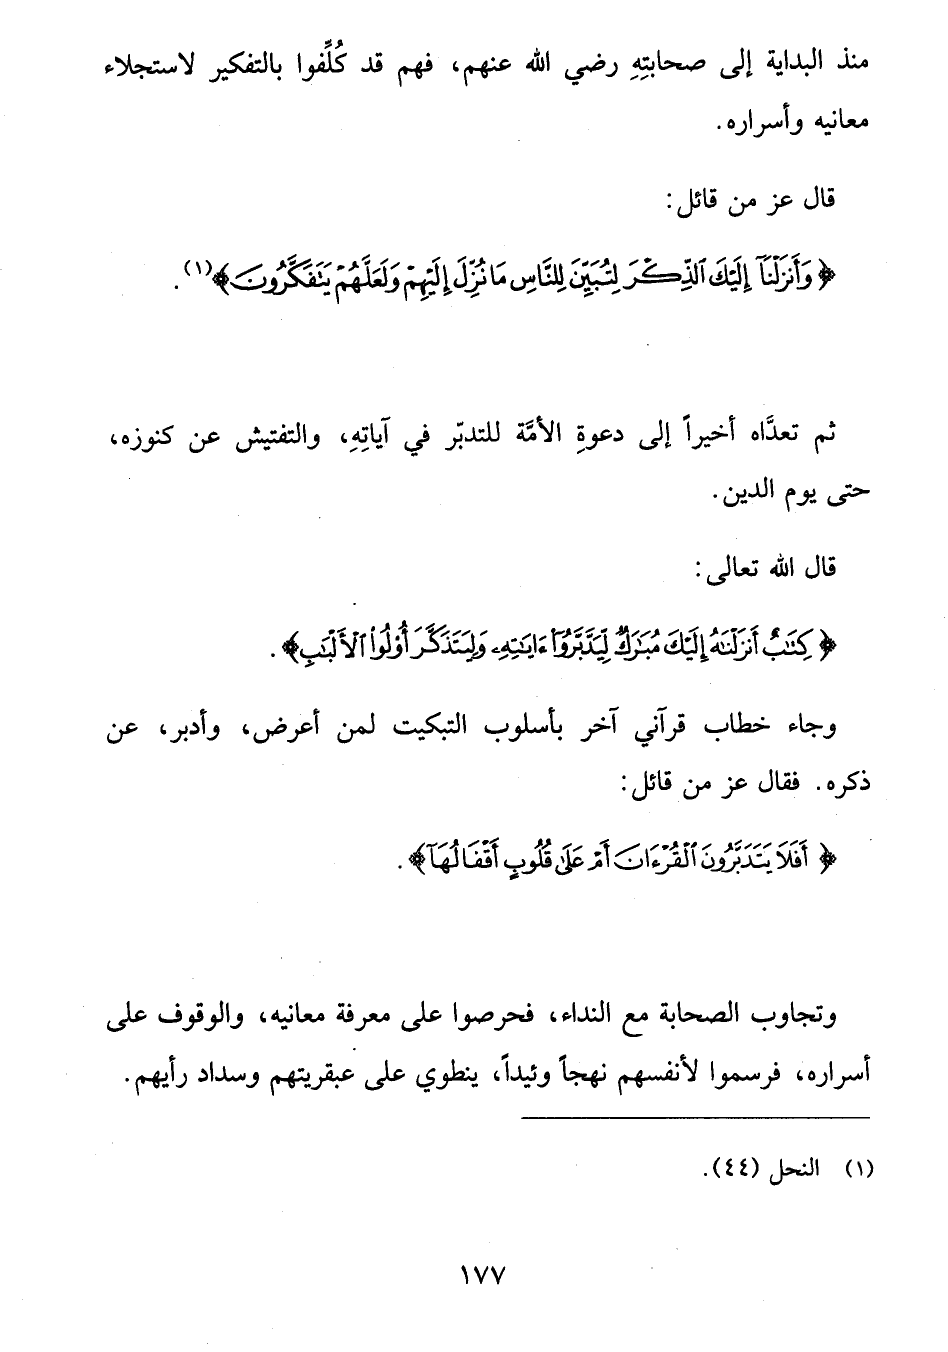 منذ البداية إلى صحابتِهِ رضي الله عنهم، فهم قد كُلِّفوا بالتفكير لاستجلاء
معانيه وأسراره.
قال عز من قائل:
﴿ وَأَنزَلْنَآ إِلَيْكَ ٱلذِّكْرَ لِتُبَيِّنَ لِلنَّاسِ مَا نُزِّلَ إِلَيْهِمْ وَلَعَلَّهُمْ يَتَفَكَّرُونَ﴾(١).
ثم تعدَّاه أخيراً إلى دعوةِ الأمَّة للتدبّر في آياتِهِ، والتفتيش عن كنوزه،
حتى يوم الدين.
قال الله تعالى:
﴿ كِتَٰبٌ أَنزَلْنَٰهُ إِلَيْكَ مُبَٰرَكٌ لِّيَدَّبَّرُوٓا۟ ءَايَٰتِهِۦ وَلِيَتَذَكَّرَ أُو۟لُوا۟ ٱلْأَلْبَٰبِ﴾.
وجاء خطاب قرآني آخر بأسلوب التبكيت لمن أعرض، وأدبر، عن
ذكره. فقال عز من قائل:
﴿ أَفَلَا يَتَدَبَّرُونَ ٱلْقُرْءَانَ أَمْ عَلَىٰ قُلُوبٍ أَقْفَالُهَآ﴾.
وتجاوب الصحابة مع النداء، فحرصوا على معرفة معانيه، والوقوف على
أسراره، فرسموا لأنفسهم نهجاً وئيداً، ينطوي على عبقريتهم وسداد رأيهم.
(١) النحل (٤٤).
١٧٧